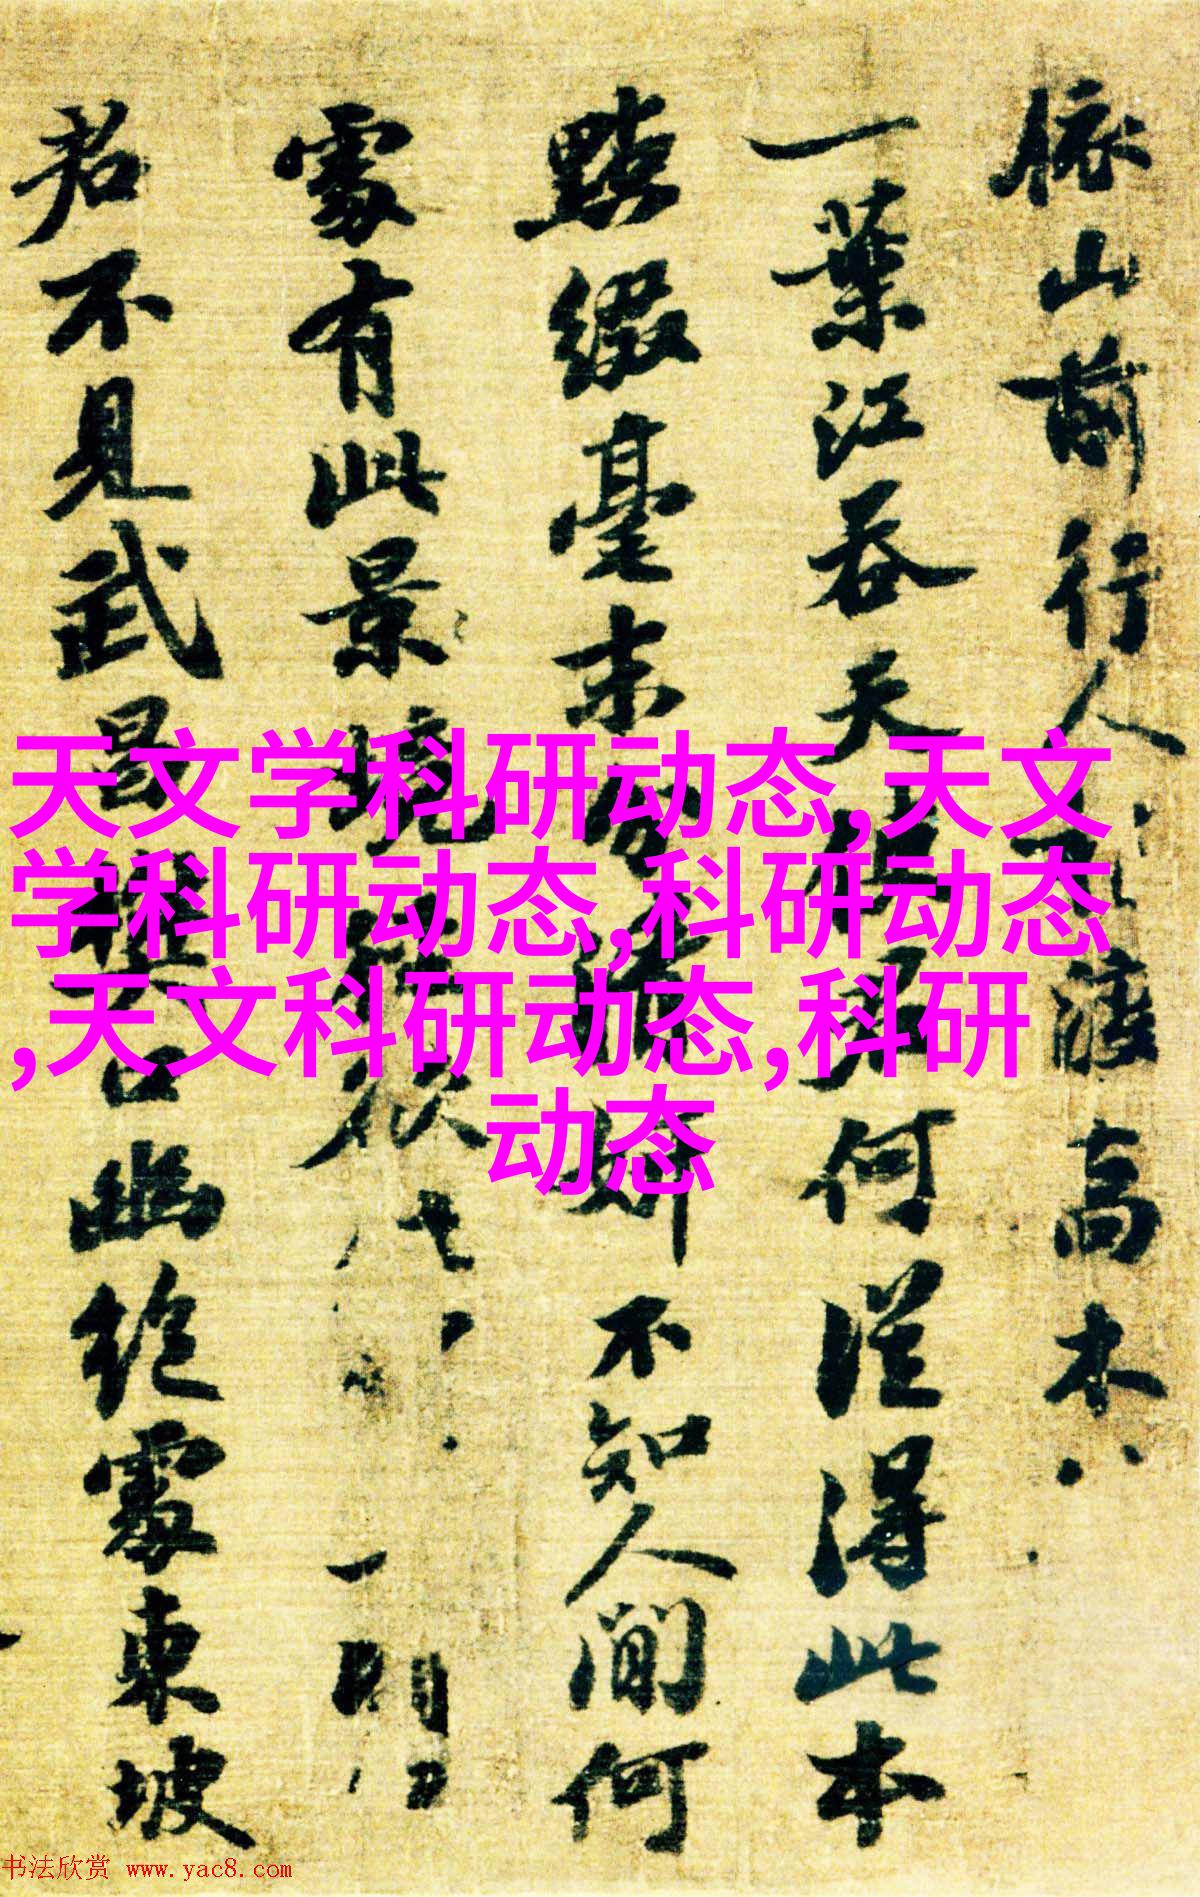 依山前行人渡高木
一葉江吞天使君何從得此本
點綴毫末分清妍不知人間何
處有此景境
君不見武昌樊口幽絕處東坡
天文学科研动态,天文
学科研动态,科研动态
,天文科研动态,科研
动态
书法欣赏 www.yac8.com